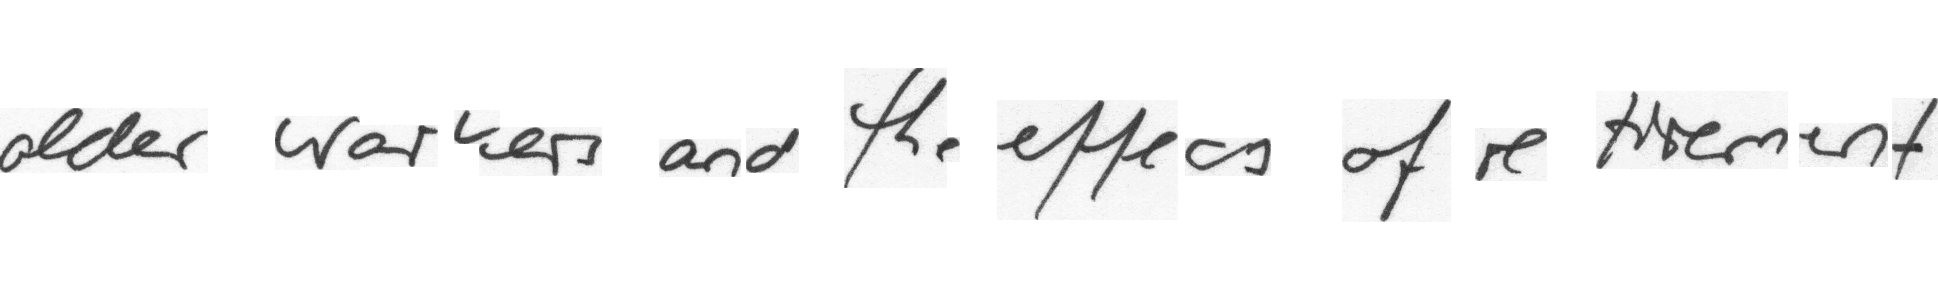 older workers and the effects of retirement